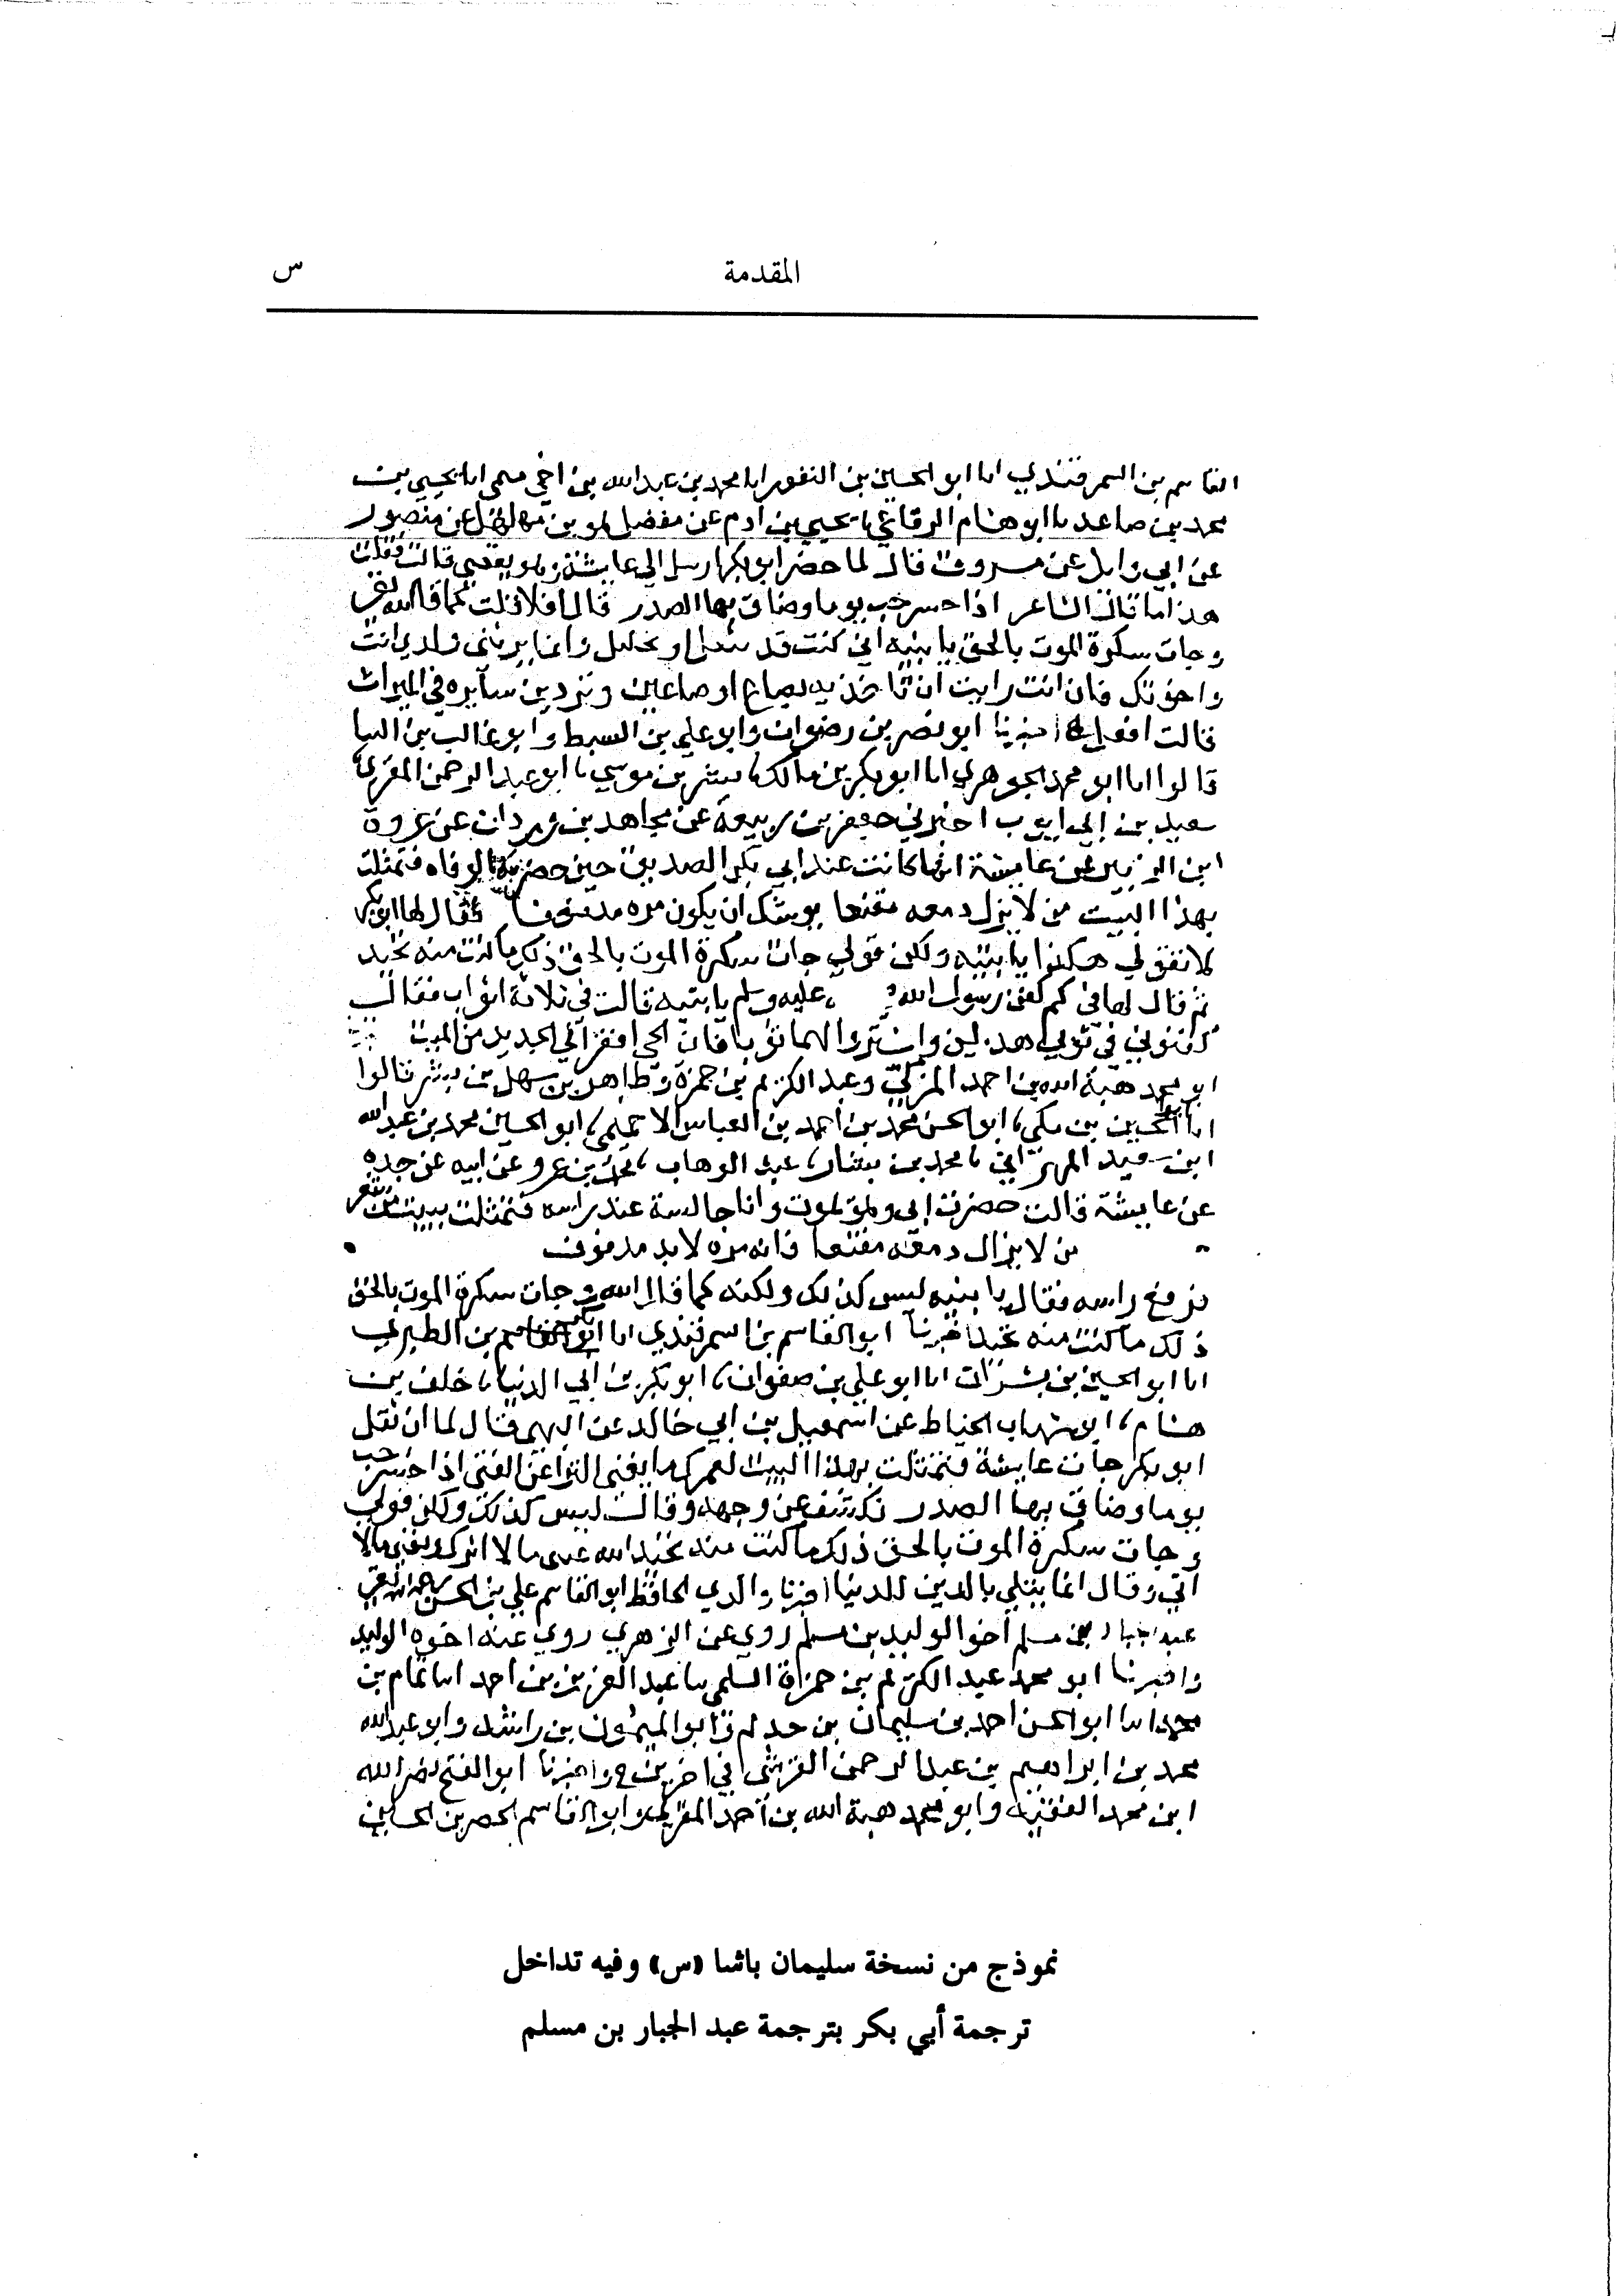 المقدمة
س
القاسم بن السمرقندي انا ابو الحسين بن النقور انا محمد بن عبد الله بن اخي ميمي انا يحيى بن
محمد بن صاعد نا ابو هشام الرفاعي نا يحيى بن ادم عن مفضل بن مهلهل عن منصور
عن ابي وايل عن مسروق قال لما حضر ابو بكر ارسل الي عايشة وهو يقضي قالت فقلت
هذا ما قال الشاعر اذا حشرجت يوما وضاق بها الصدر قال افلا قلت كما قال الله
وجات سكرة الموت بالحق يا بنيه اني كنت قد ولدي انت
واخوتك فان انت رايت ان تاخذيه بصاع او صاعين وتردين سايره في الميراث
قالت افعل اخبرنا ابو نصر بن رضوان وابو علي بن السبط وابو غالب بن البنا
قالوا انا ابو محمد الجوهري انا ابو بكر بن مالك نا بشر بن موسي نا ابو عبد الرحمن المقري نا
سعيد بن ابي ايوب اخبرني جعفر بن ربيعة عن مجاهد بن وردان عن عروة
ابن الزبير عن عايشة انها كانت عند ابي بكر الصديق حين حضرته الوفاه فتمثلت
بهذا البيت من لا يزل دمعه مقنعا يوشك ان يكون مره مدفوقا فقال لها ابو بكر
لا تقولي هكذا يا بنيه ولكن قولي جات سكرة الموت بالحق ذلك ما كنت منه تحيد
ثم قال لها في كم كفن رسول الله عليه وسلم يا بنيه قالت في ثلاثة اثواب فقال
كفنوني في ثوبي هدين واشتروا لهما ثوبا فان الحي افقر الي الجديد من الميت
ابو محمد هبة الله بن احمد المزكي وعبد الكريم بن حمزة وطاهر بن سهل بن بشر قالوا
انا ابو الحسين بن مكي نا ابو الحسن محمد بن احمد بن العباس الاخميمي نا ابو الحسين محمد بن عبد الله
ابن سعيد المهراني نا محمد بن بشار نا عبد الوهاب نا محمد بن عمرو عن ابيه عن جده
عن عايشة قالت حضرت ابي وهو يموت وانا جالسة عند راسه فتمثلت ببيت من شعر
من لا يزال دمعه مقنعا فانه مره لا بد مدفوق
فرفع راسه فقال يا بنيه ليس كذلك ولكنه كما قال الله وجات سكرة الموت بالحق
ذلك ما كنت منه تحيد اخبرنا ابو القاسم بن السمرقندي انا ابو القاسم بن الطبري
انا ابو الحسين بن بشران انا ابو علي بن صفوان نا ابو بكر بن ابي الدنيا نا خلف بن
هشام نا ابو شهاب الحناط عن اسمعيل بن ابي خالد عن البهي قال لما ان ثقل
ابو بكر جات عايشة فتمثلت بهذا البيت لعمرك ما يغني الثرا عن الفتى اذا حشرجت
يوما وضاق بها الصدر فكشف عن وجهه وقال ليس كذلك ولكن قولي
وجات سكرة الموت بالحق ذلك ما كنت منه تحيد
وقال اخبرنا والدي الحافظ ابو القاسم علي بن الحسن رحمه الله
عبد الجبار بن مسلم اخو الوليد بن مسلم روي عن الزهري روي عنه اخوه الوليد
واخبرنا ابو محمد عبد الكريم بن حمزة السلمي نا عبد العزيز بن احمد انا تمام بن
محمد انا ابو الحسن احمد بن سليمان بن حدلم وابو الميمون بن راشد وابو عبد الله
محمد بن ابراهيم بن عبد الرحمن القرشي في اخرين ح واخبرنا ابو الفتح نصر الله
ابن محمد الفقيه وابو محمد هبة الله بن احمد المقري وابو القاسم الخضر بن الحسين
نموذج من نسخة سليمان باشا «س» وفيه تداخل
ترجمة أبي بكر بترجمة عبد الجبار بن مسلم